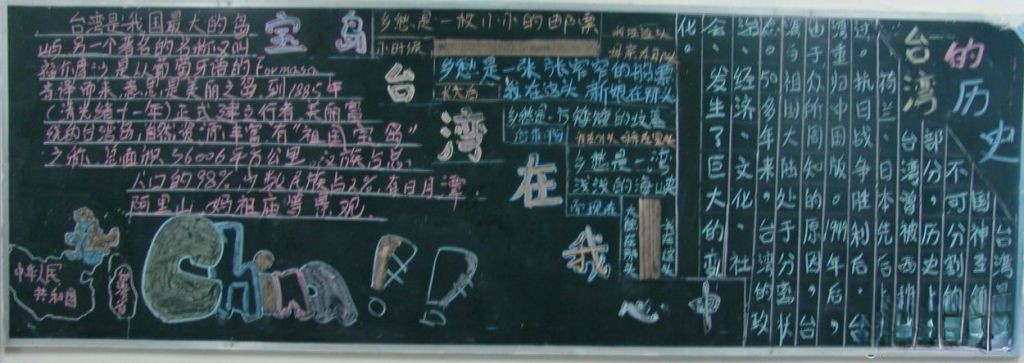 宝岛
台湾在我心中
台湾是我国最大的岛
屿,另一个著名的名称又叫
福尔摩沙是从葡萄牙语的Formosa
音译而来,意思是美丽之岛,到1885年
(清光绪十一年)正式建立行省,美丽富
饶的台湾岛,自然资源丰富有"祖国宝岛"
之称,总面积36006平方公里,汉族占总
人口的98%,少数民族占2%,有日月潭,
阿里山,妈祖庙等景观。
中华人民
共和国
China!!
乡愁是一枚小小的邮票
小时候
乡愁是一张张窄窄的船票
长大后
我在这头 新娘在那头
乡愁是一方矮矮的坟墓
乡愁是一湾
浅浅的海峡
而现在
台湾的历史
台湾
国神圣
不可分割的领
部分,历史上
台湾曾被西班
荷兰、日本先后
过。抗日战争胜利后,台
湾重归中国版
由于众所周知的原因,台
湾与祖国大陆处于分离状
态。50多年来,台湾的政
治、经济、文化、社
会,发生了巨大的变
化。